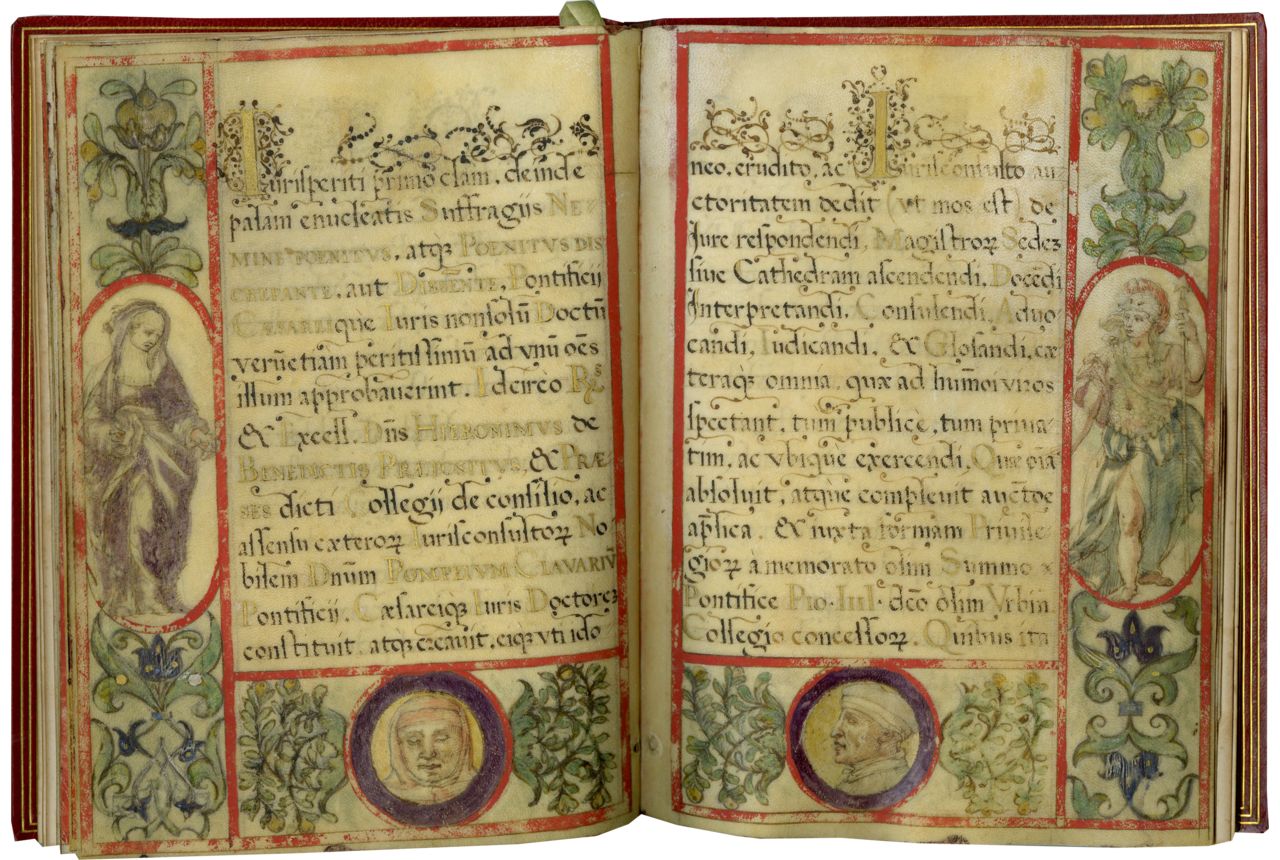 Iurisperiti primo clam, deinde
palam enucleatis Suffragijs NE=
MINE POENITVS, atq; POENITVS DIS
CREPANTE, aut DISSENTE, Pontificij
CÆSAREIque Iuris nonsolū Doctū
verūetiam peritissimū ad vnū oēs
illum approbauerint. Idcirco
& Excell. Dn̄s HIERONIMVS de
BENEDICTIS PRÆPOSITVS, & PRÆ=
dicti Collegij de consilio, ac
assensu cæteroꝝ Iurisconsultoꝝ No
bilem Dnūm POMPEIVM CLAVARIV̄
Pontificij, Cæsareiq; Iuris Doctorem
constituit, atq; creauit, eiq; vti ido
neo, erudito, ac Iurisconsulto au
ctoritatem dedit (vt mos est) de
Jure respondendi, Magistroꝝ Sedem
siue Cathedram ascendendi, Docēdi
Interpretandi, Consulendi, Aduo
candi, Iudicandi, & Glosandi, cæ
teraq; omnia, quæ ad hūmoi viros
spectant, tum publicè, tum priua
tim, ac vbique exercendi, Quæ oīa
absoluit, atque compleuit auctōe
ap̄lica, & iuxta formam Priuile=
gioꝝ à memorato olim Summo
Pontifice PIO·IIII· dc̄o olim Vrbin
Collegio concessoꝝ, Quibus ita